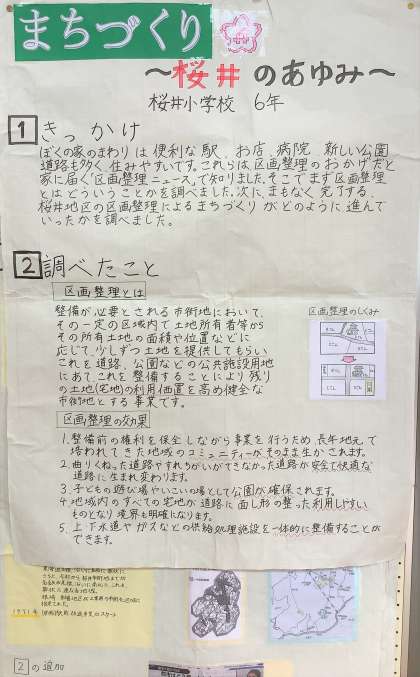 まちづくり
～桜井のあゆみ～
桜井小学校 6年
1 きっかけ
ぼくの家のまわりは便利な駅、お店、病院、新しい公園
道路も多く、住みやすいです。これらは、区画整理のおかげだと
家に届く「区画整理ニュース」で知りました。そこでまず区画整理
とはどういうことかを調べました。次に、まもなく完了する、
桜井地区の区画整理によるまちづくりがどのように進んで
いったかを調べました。
2 調べたこと
区画整理とは
整備が必要とされる市街地において、
その一定の区域内で土地所有者等から
その所有土地の面積や位置などに
応じて、少しずつ土地を提供してもらい
これを道路、公園などの公共施設用地
にあて、これを整備することにより残り
の土地(宅地)の利用価置を高め健全な
市街地とする事業です。
区画整理のしくみ
区画整理の効果
1. 整備前の権利を保全しながら事業を行うため長年地元で
培われてきた地域のコミュニティーがそのまま生かされます。
2. 曲りくねった道路やすれちがいができなかった道路が安全で快適な
道路に生まれ変わります。
3. 子どもの遊び場やいこいの場として公園が確保されます。
4. 地域内のすべての宅地が道路に面し形の整った利用しやすい
ものとなり境界も明確になります。
5. 上・下水道やガスなどの供給処理施設を一体的に整備することが
できます。
2 の追加